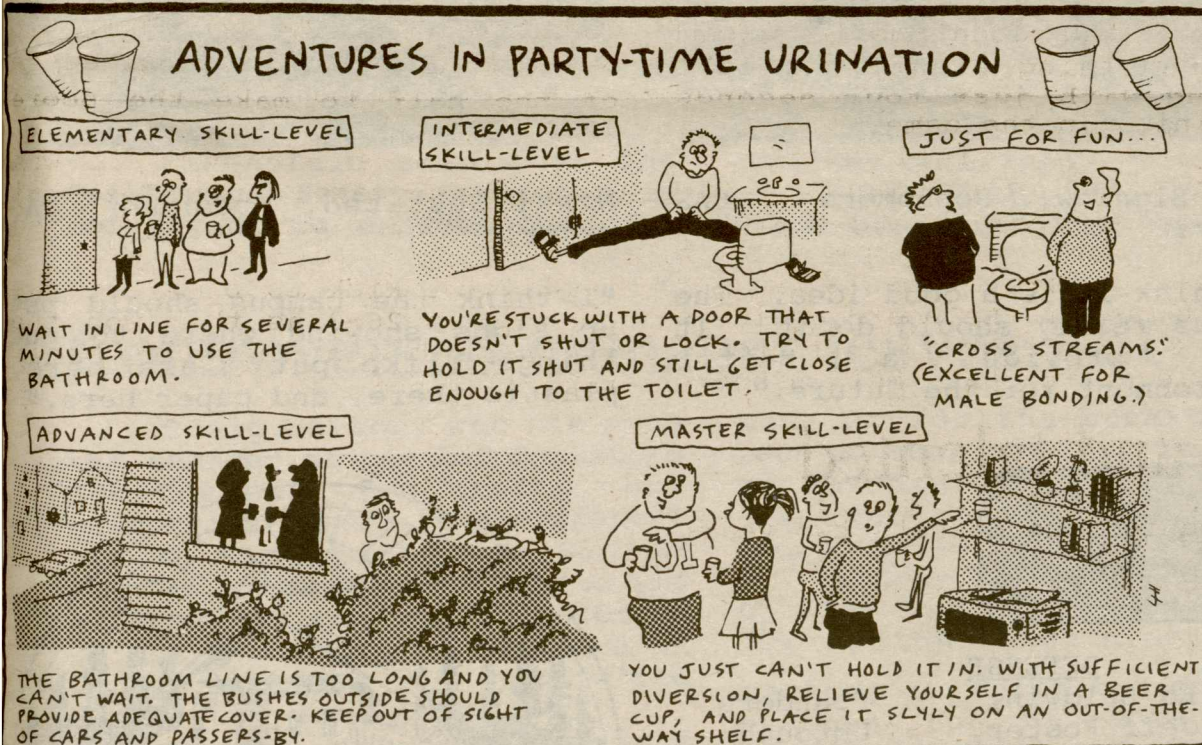 ADVENTURES IN PARTY-TIME URINATION
ELEMENTARY SKILL-LEVEL
WAIT IN LINE FOR SEVERAL
MINUTES TO USE THE
BATHROOM.
INTERMEDIATE
SKILL-LEVEL
YOU'RE STUCK WITH A DOOR THAT
DOESN'T SHUT OR LOCK. TRY TO
HOLD IT SHUT AND STILL GET CLOSE
ENOUGH TO THE TOILET.
JUST FOR FUN...
"CROSS STREAMS."
(EXCELLENT FOR
MALE BONDING.)
ADVANCED SKILL-LEVEL
THE BATHROOM LINE IS TOO LONG AND YOU
CAN'T WAIT. THE BUSHES OUTSIDE SHOULD
PROVIDE ADEQUATE COVER. KEEP OUT OF SIGHT
OF CARS AND PASSERS-BY.
MASTER SKILL-LEVEL
YOU JUST CAN'T HOLD IT IN. WITH SUFFICIENT
DIVERSION, RELIEVE YOURSELF IN A BEER
CUP, AND PLACE IT SLYLY ON AN OUT-OF-THE-
WAY SHELF.